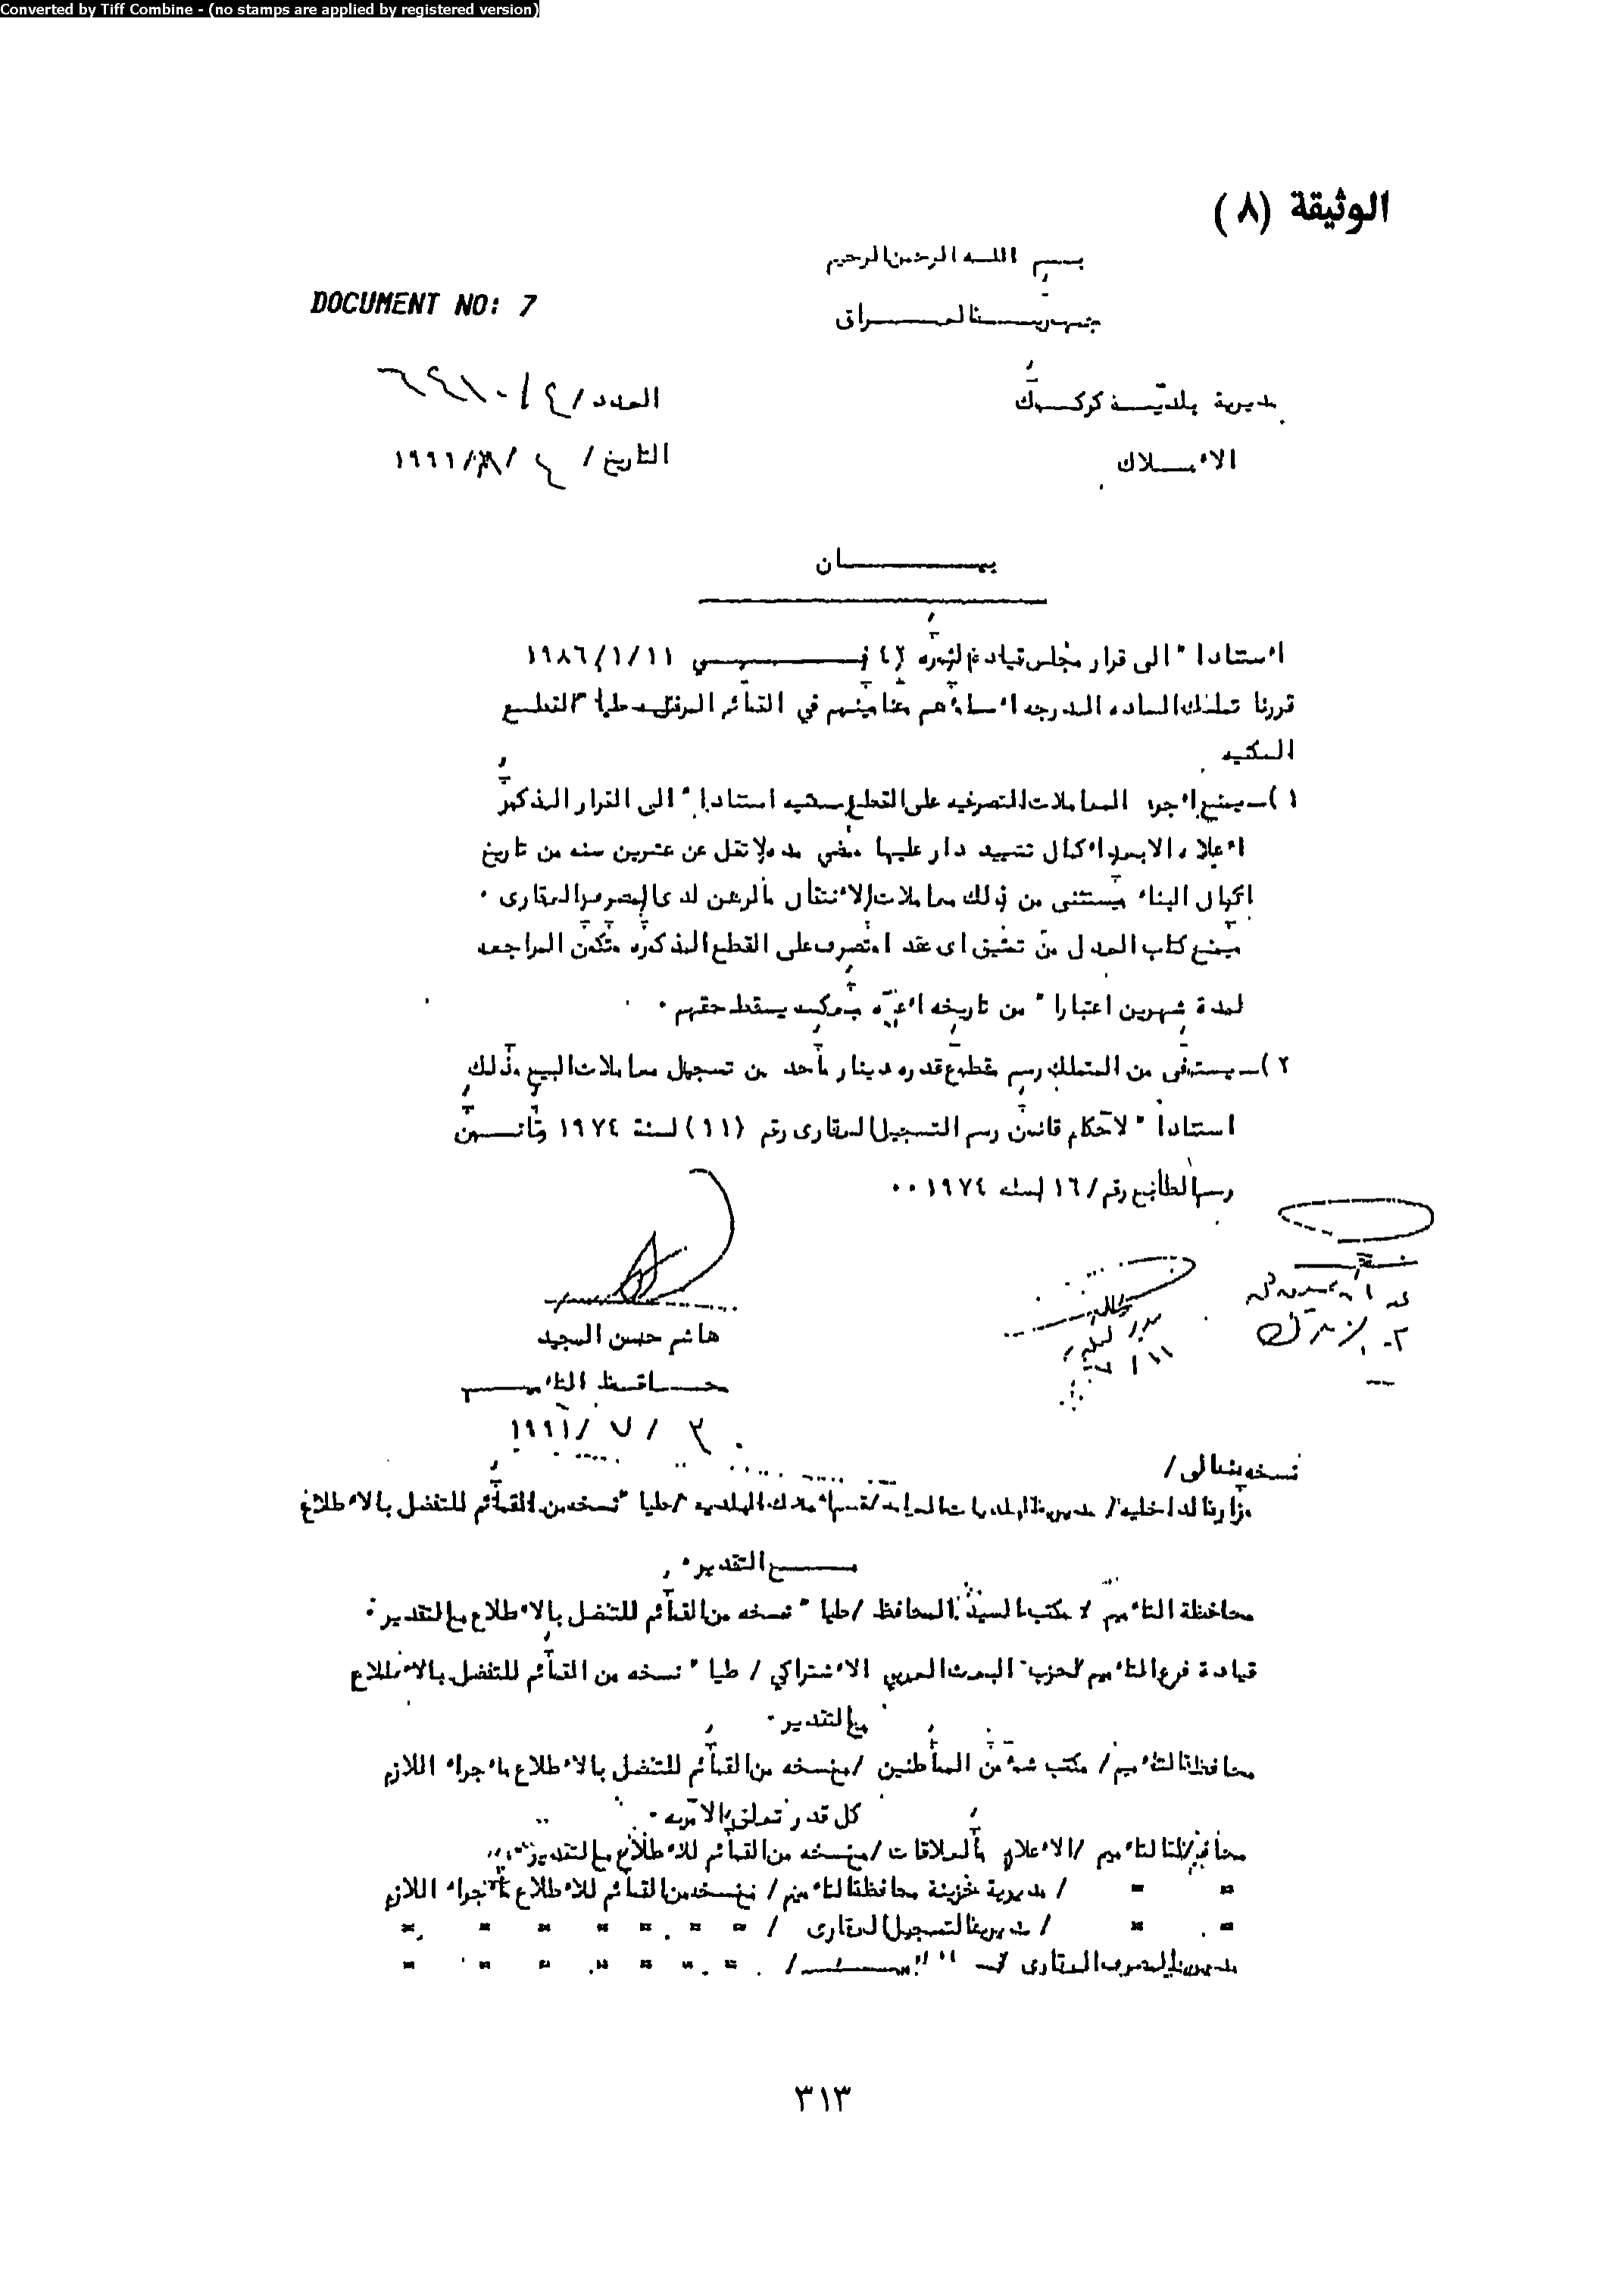 Converted by Tiff Combine - (no stamps are applied by registered version)
الوثيقة (٨)
بسم الله الرحمن الرحيم
DOCUMENT NO: 7
جمهورية العراق
مديرية بلدية كركوك
العدد/
الاملاك
التاريخ/ ٤ / /١٩٩١
بيان
استنادا" الى قرار مجلس قيادة الثوره ٤٢ في ١٩٨٦/١/١١
قررنا تمليك الساده المدرجه اسماؤهم وعناوينهم في القوائم المرفقه طيا" القطع
السكنيه
١)ـ يمنع اجراء المعاملات التصرفيه على القطع استنادا" الى القرار المذكور
اعلاه الابعد اكمال تشييد دار عليها ومضي مده لا تقل عن عشرين سنه من تاريخ
اكمال البناء ويستثنى من ذلك معاملات الانتقال والرهن لدى المصرف العقارى ٠
ويمنع كتاب العدل من توثيق اى عقد تصرف على القطع المذكوره وتكون المراجعه
لمدة شهرين اعتبارا" من تاريخه اعلاه يسقط حقهم ٠
٢)ـ يستوفى من المتملك رسم مقطوع قدره دينار واحد عن تسجيل معاملات البيع وذلك
استنادا" لاحكام قانون رسم التسجيل العقارى رقم (١١) لسنة ١٩٧٤ وقانون
رسم الطابع رقم/ ١٦ لسنه ١٩٧٤ ٠٠
هاشم حسن المجيد
محافظ التاميم
٣ / ٧ /١٩٩١
نسخه منه الى/
وزارة الداخلية/ مديرية البلديات العامه/قسم املاك البلديه/طيا" نسخه من القوائم للتفضل بالاطلاع
مع التقدير ٠
محافظة التاميم / مكتب السيد المحافظ /طيا" نسخه من القوائم للتفضل بالاطلاع مع التقدير ٠
قيادة فرع التاميم لحزب البعث العربي الاشتراكي / طيا" نسخه من القوائم للتفضل بالاطلاع
مع التقدير ٠
محافظة التاميم/ مكتب شؤون المواطنين /مع نسخه من القوائم للتفضل بالاطلاع واجراء اللازم
كل قدر تعلق الامر به ٠
محافظة التاميم /الاعلام والعلاقات /مع نسخه من القوائم للاطلاع مع التقدير
" " / مديرية خزينة محافظة التاميم/ مع نسخه من القوائم للاطلاع واجراء اللازم
" " / مديرية التسجيل العقارى / " " " " " " "
مديرية المصرف العقارى / " " " " " " "
٣١٣